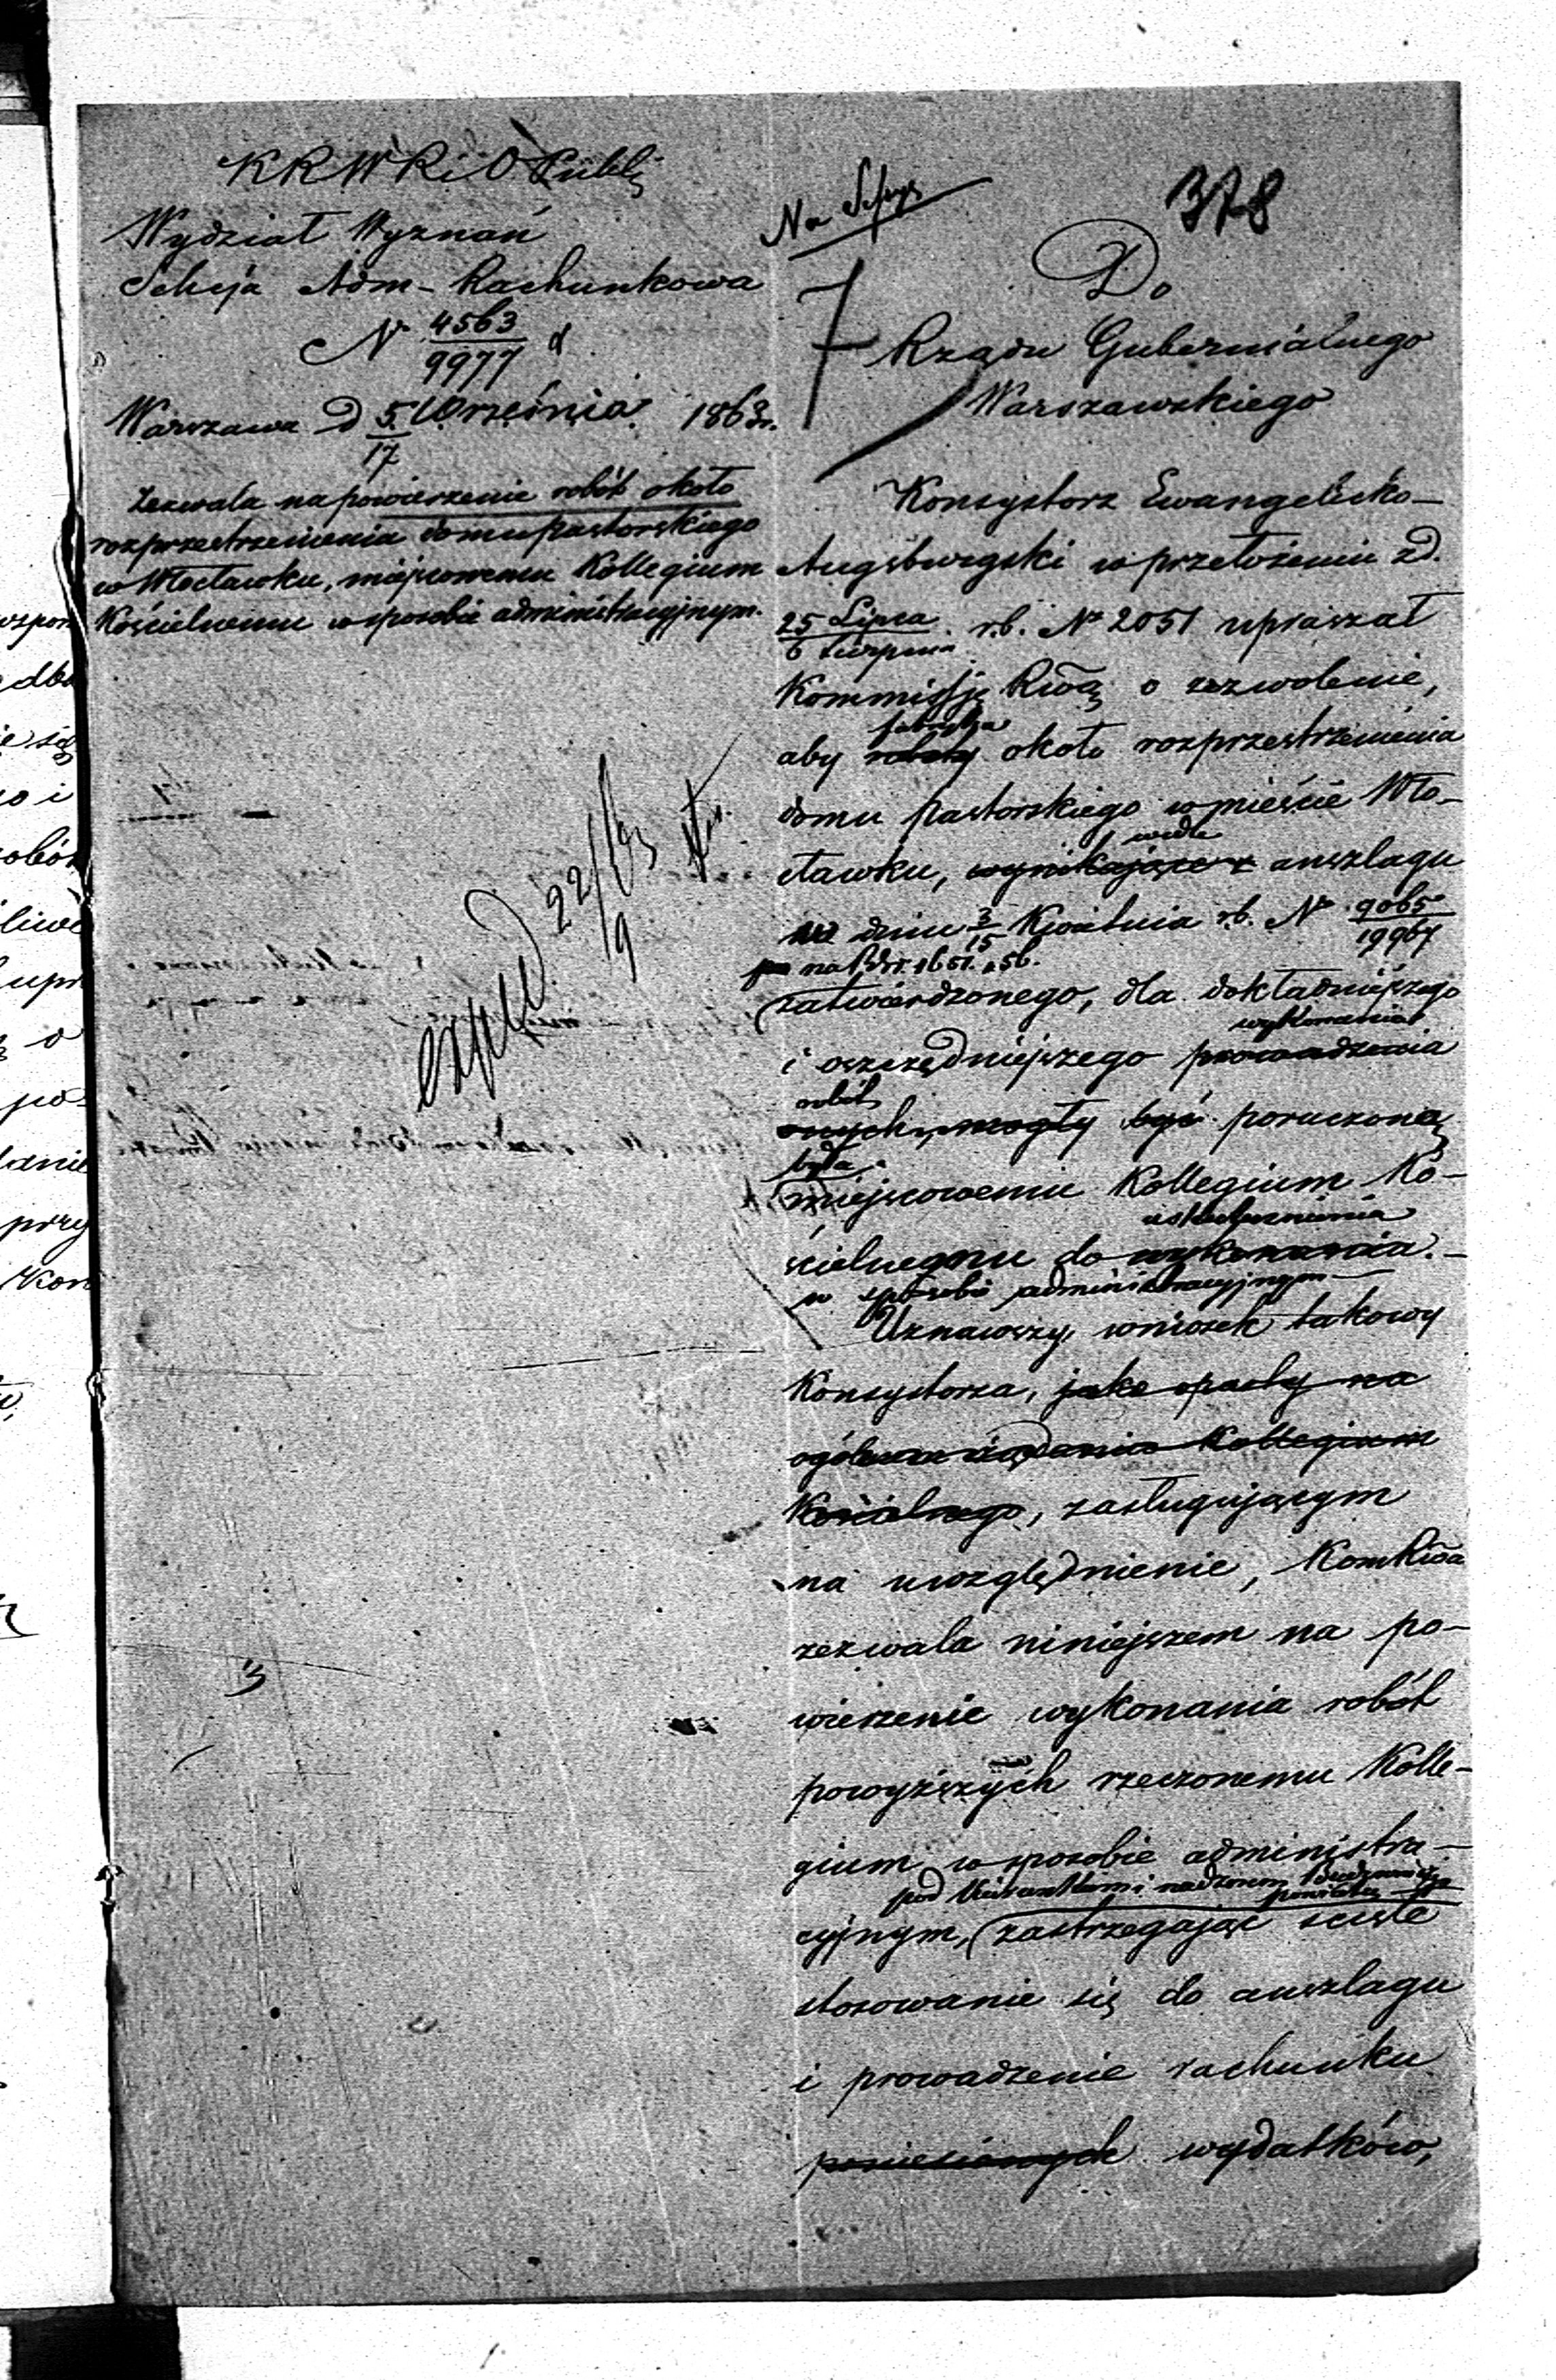 378
KRWR i O Publ
Wydział Wyznań
Sekcja Adm-Rachunkowa
N 4563/9977
Warszawa d 5/17 Września 1863 r.
Zezwala na powierzenie robót około
rozprzestrzenienia domu pastorskiego
w Włocławku, miejscowemu Kollegium
Kościelnemu w sposobie administracyjnym.
exped 22/9 63
Do
Rządu Gubernialnego
Warszawskiego
Konsystorz Ewangelicko-
Augsburgski w przełożeniu z d.
25 Lipca/6 Sierpnia r.b. N 2051 upraszał
Kommissję Rwą o zezwolenie,
fabryka
aby roboty około rozprzestrzenienia
domu pastorskiego w mieście Wło-
wedle
cławku, wynikające z anszlagu
w dniu 3/15 Kwietnia r.b. N 9065/19967
na
zatwierdzonego, dla dokładniejszego
wykonania
i oszczędniejszego prowadzenia
robót
onych, mogły być poruczoną
była
miejscowemu Kollegium Ko-
uskutecznienia
ścielnemu do wykonania.-
w sposobie administracyjnym
Uznawszy, wniosek takowy
Konsystorza, jako oparty na
ogólnem żądaniu Kollegium
Kościelnego, zasługującym
na uwzględnienie, Kom Rwa
zezwala niniejszem na po-
wierzenie wykonania robót
powyższych rzeczonemu Kolle-
gium w sposobie administra-
pod kierunkiem i nadzorem
powiatu
cyjnym, zastrzegając ścisłe
stosowanie się do anszlagu
i prowadzenie rachunku
poniesionych wydatków,